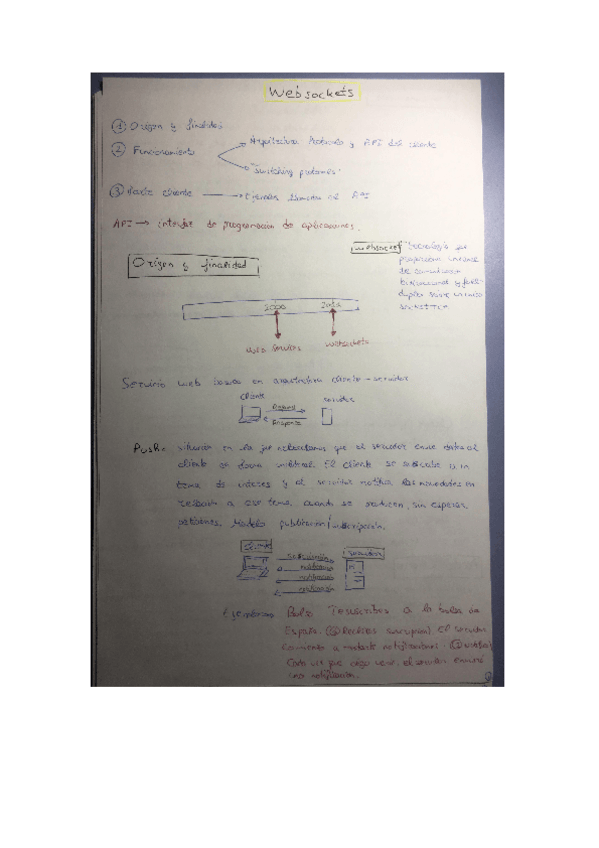 Websockets
① Origen y finalidad
② Funcionamiento
Arquitectura Protocolo y API del cliente
"Switching protocols"
③ Parte cliente
API → interfaz de programación de aplicaciones.
websocket tecnología que
proporciona un canal
de comunicación
bidireccional y full-
duplex sobre un único
socket TCP.
Origen y finalidad
2000
web services
websockets
Servicio web basado en arquitectura cliente - servidor
cliente
servidor
Push: situación en la que necesitamos que el servidor envíe datos al
cliente de forma unilateral. El cliente se subscribe a un
tema de interés y el servidor notifica las novedades en
respecto a ese tema, cuando se producen, sin esperar
peticiones. Modelo publicación/subscripción.
cliente
servidor
subscripción
notificación
notificación
notificación
Ejemplos: Bolsa a la bolsa de
España. El servidor
Cada vez que algo el servidor enviará
una notificación.